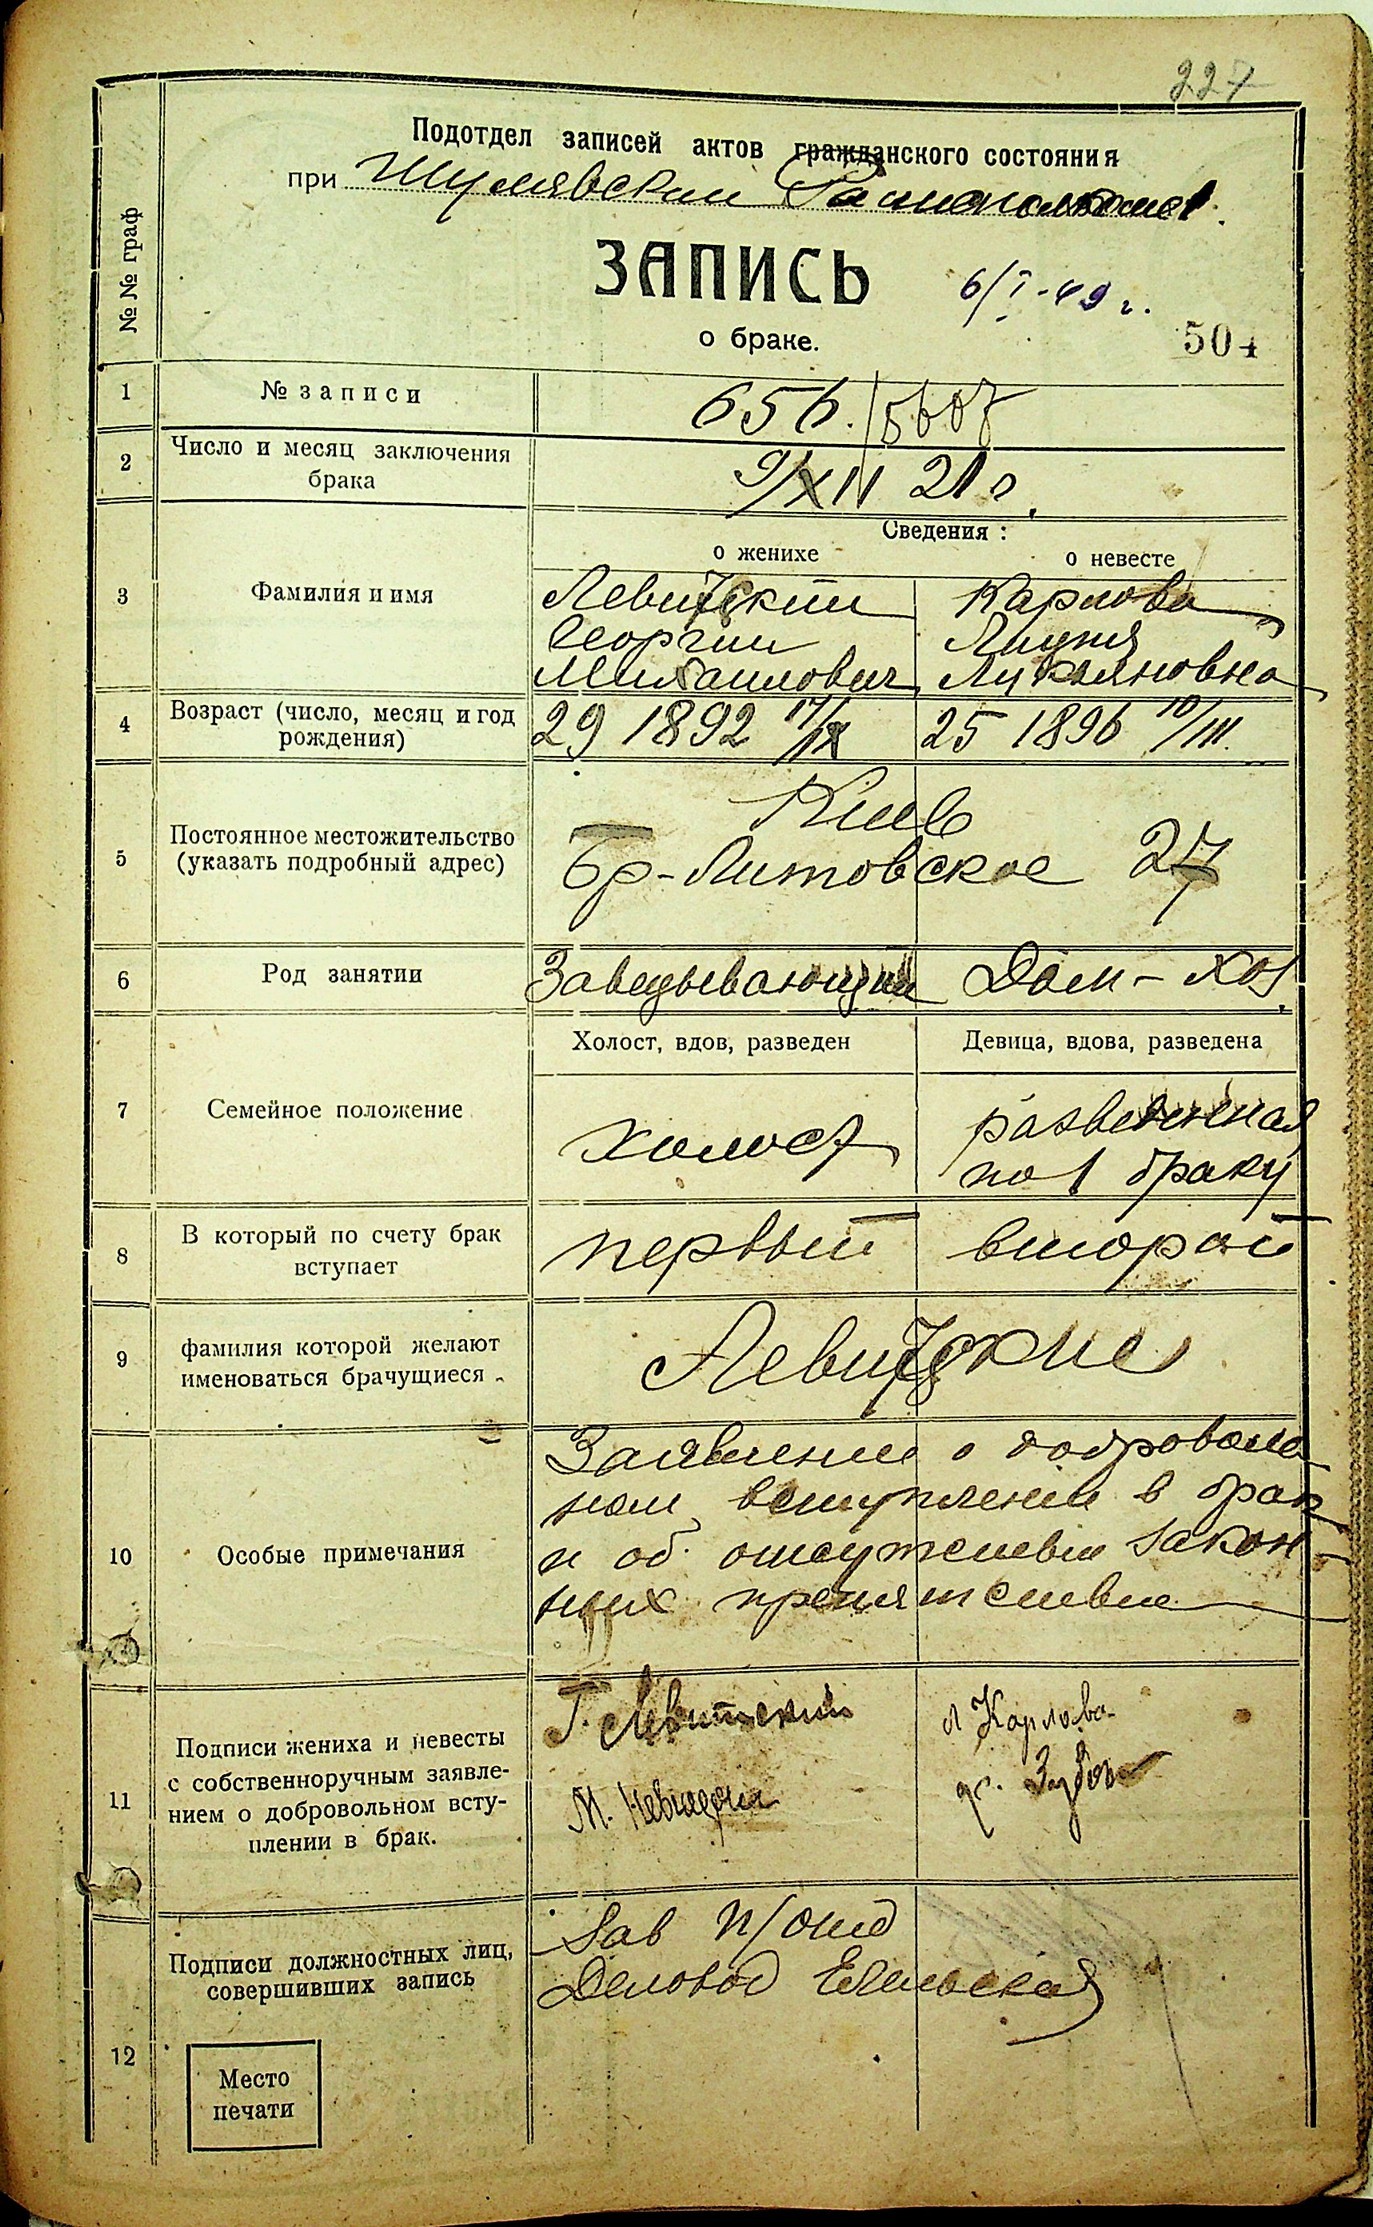 227
Подотдел записей актов гражданского состояния
при Шулявский
ЗАПИСЬ
6/I-49 г.
о браке.
504
№№ граф
1 № записи 656.
2 Число и месяц заключения
брака
9/XII 21 г.
Сведения:
о женихе о невесте
3 Фамилия и имя
Левитский Карпова
Георгий
Михайлович Лукьяновна
4 Возраст (число, месяц и год
рождения)
29 1892 17/IX 25 1896 10/III.
5 Постоянное местожительство
(указать подробный адрес)
Киев
Бр-Литовское 27
6 Род занятии Заведывающий Дом-хоз.
Холост, вдов, разведен Девица, вдова, разведена
7 Семейное положение
холост разведенная
по 1 браку
8 В который по счету брак
вступает
первый второй
9 фамилия которой желают
именоваться брачущиеся
Левитские
10 Особые примечания
Заявление о доброволь
ном вступлении в брак
и об отсутствии закон
ных препятствии
11 Подписи жениха и невесты
с собственноручным заявле-
нием о добровольном всту-
плении в брак.
Г. Левитский Л Карпова
М.
12 Подписи должностных лиц,
совершивших запись
Зав п/отд
Деловод
Место
печати